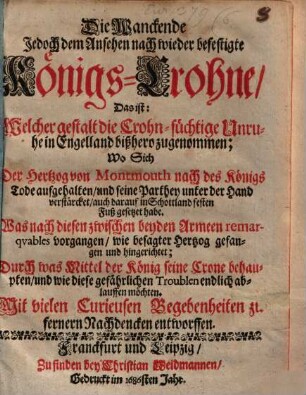 Die Wanckende
Jedoch dem Ansehen nach wieder befestigte
Königs-Crohne/
Das ist:
Welcher gestalt die Crohn-süchtige Unru-
he in Engelland bißhero zugenommen;
Wo Sich
Der Hertzog von Montmouth nach des Königs
Tode auffgehalten/und seine Parthey unter der Hand
verstärcket/auch darauf in Schottland festen
Fuß gesetzet habe.
Was nach diesen zwischen beyden Armeen remar-
qvables vorgangen/wie besagter Hertzog gefan-
gen und hingerichtet;
Durch was Mittel der König seine Crone behau-
pten/und wie diese gefährlichen Troublen endlich ab-
lauffen möchten.
Mit vielen Curieusen Begebenheiten zu
fernern Nachdencken entworffen.
Franckfurt und Leipzig/
Zu finden bey Christian Weidmannen/
Gedruckt im 1686sten Jahr.